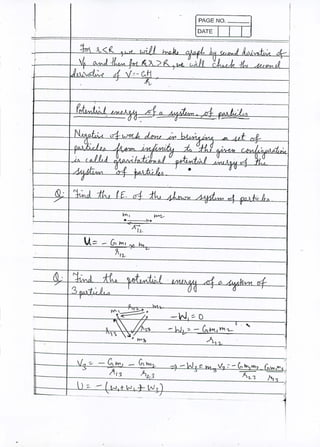 PAGE NO.
DATE
For r < R, we will make graph by second derivative of
Vp and then for r > R, we will check the second
derivative of V = -GM/r
Potential energy of a system of particles
Negative of work done in bringing a set of
particles from infinity to the given configuration
is called gravitational potential energy of the
system of particles.
Q: Find the P.E. of the shown system of particles.
m1 m2
r12
U = - G m1 × m2
r12
Q: Find the potential energy of a system of
3 particles
m1 r12 m2
r13 r23
m3
-W1 = 0
-W2 = - G m1 m2
r12
V3 = - G m1 - G m2 => -W3 = m3 V3 = - G m1 m3 - G m2 m3
r13 r23
U = - (W1 + W2 + W3)